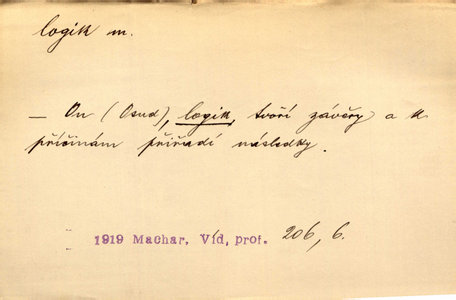 logik m.
— On (Osud), logik, tvoří závěry a k
příčinám přiřadí následky.
1919 Machar, Víd, prof. 206, 6.